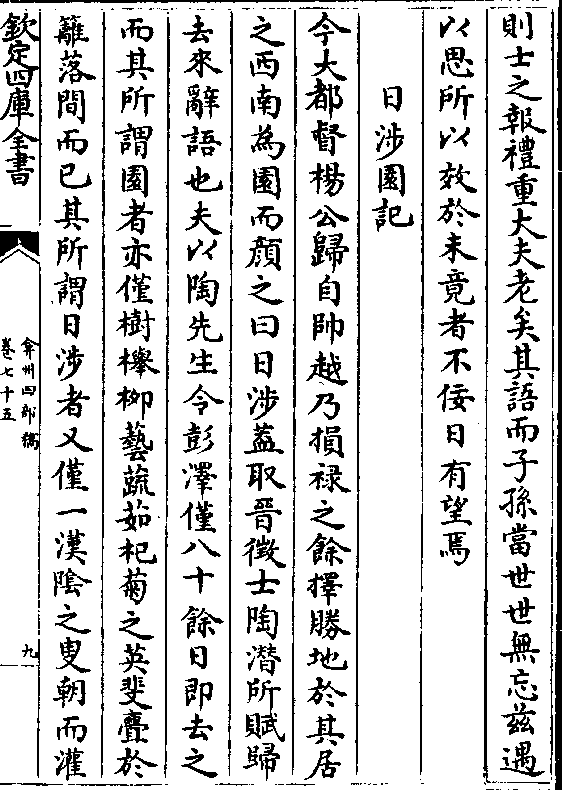 則士之報禮重大夫老矣其語而子孫當世世無忘茲遇
以思所以效於未竟者不佞日有望焉
日涉園記
今大都督楊公歸自帥越乃損祿之餘擇勝地於其居
之西南為園而顔之曰日涉蓋取晉徵士陶潛所賦歸
去來辭語也夫以陶先生令彭澤僅八十餘日即去之
而其所謂園者亦僅樹櫸柳藝蔬茹杞菊之英斐亹於
籬落間而已其所謂日涉者又僅一漢陰之叟朝而灌
欽定四庫全書
弇州四部稿
卷七十五
九